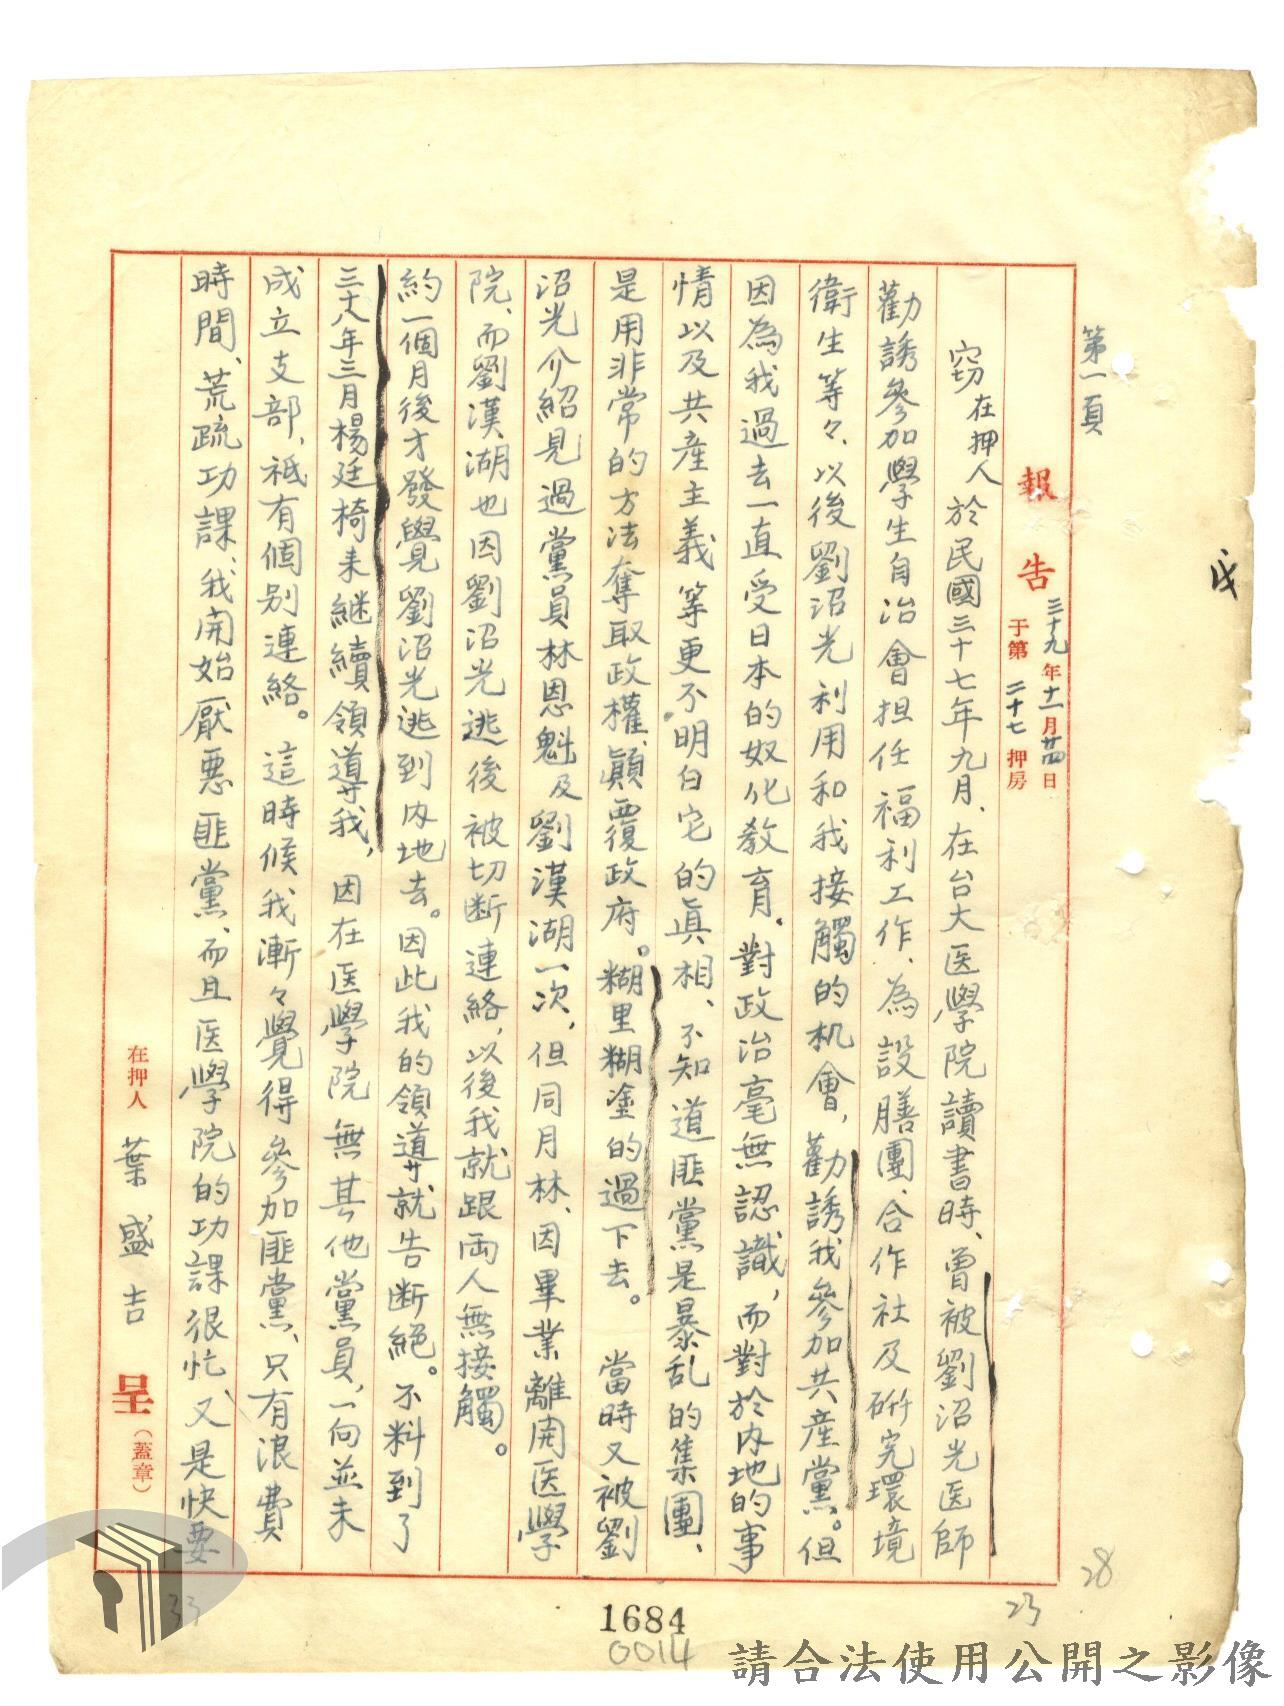 第一頁
報告 三十九年十一月廿四日
于第二十七押房
竊在押人於民國三十七年九月、在台大医學院讀書時、曾被劉沼光医師
勸誘參加學生自治會担任福利工作、為設膳團、合作社及研究環境
衛生等々、以後劉沼光利用和我接觸的机會，勸誘我參加共產黨。但
因為我過去一直受日本的奴化教育、對政治毫無認識，而對於內地的事
情以及共產主義等更不明白它的眞相、不知道匪黨是暴乱的集團、
是用非常的方法奪取政權、顛覆政府。糊里糊塗的過下去。當時又被劉
沼光介紹見過黨員林恩魁及劉漢湖一次，但同月林、因畢業離開医學
院、而劉漢湖也因劉沼光逃後被切断連絡，以後我就跟両人無接觸。
約一個月後才發覺劉沼光逃到内地去。因此我的領導就告断絕。不料到了
三十八年三月楊廷椅来継續領導我，因在医學院無其他黨員，一向並未
成立支部、祇有個别連絡。這時候我漸々覺得參加匪黨、只有浪費
時間、荒疏功課、我開始厭惡匪黨、而且医學院的功課很忙、又是快要
在押人 葉盛吉 呈（蓋章）
戌
28
23
33
1684
0014
請合法使用公開之影像